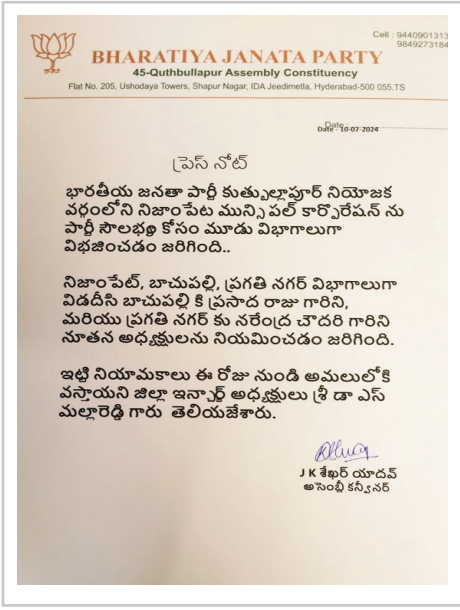 Cell : 9440901313
9849273184
BHARATIYA JANATA PARTY
45-Quthbullapur Assembly Constituency
Flat No. 205, Ushodaya Towers, Shapur Nagar, IDA Jeedimetla, Hyderabad-500 055.TS
Date
Date : 10-07-2024
ప్రెస్ నోట్
భారతీయ జనతా పార్టీ కుత్బుల్లాపూర్ నియోజక
వర్గంలోని నిజాంపేట మున్సి పల్ కార్పోరేషన్ ను
పార్టీ సౌలభ్యం కోసం మూడు విభాగాలుగా
విభజించడం జరిగింది..
నిజాంపేట్, బాచుపల్లి, ప్రగతి నగర్ విభాగాలుగా
విడదీసి బాచుపల్లి కి ప్రసాద రాజు గారిని,
మరియు ప్రగతి నగర్ కు నరేంద్ర చౌదరి గారిని
నూతన అధ్యక్షులను నియమించడం జరిగింది.
ఇట్టి నియామకాలు ఈ రోజు నుండి అమలులోకి
వస్తాయని జిల్లా ఇన్చార్జ్ అధ్యక్షులు శ్రీ డా ఎస్
మల్లారెడ్డి గారు తెలియజేశారు.
J K శేఖర్ యాదవ్
అసెంబ్లీ కన్వీనర్